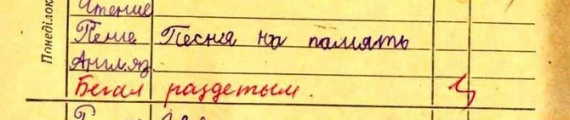 Понеділок
Чтение
Пение Песня на память
Англяз.
Бегал раздетым.